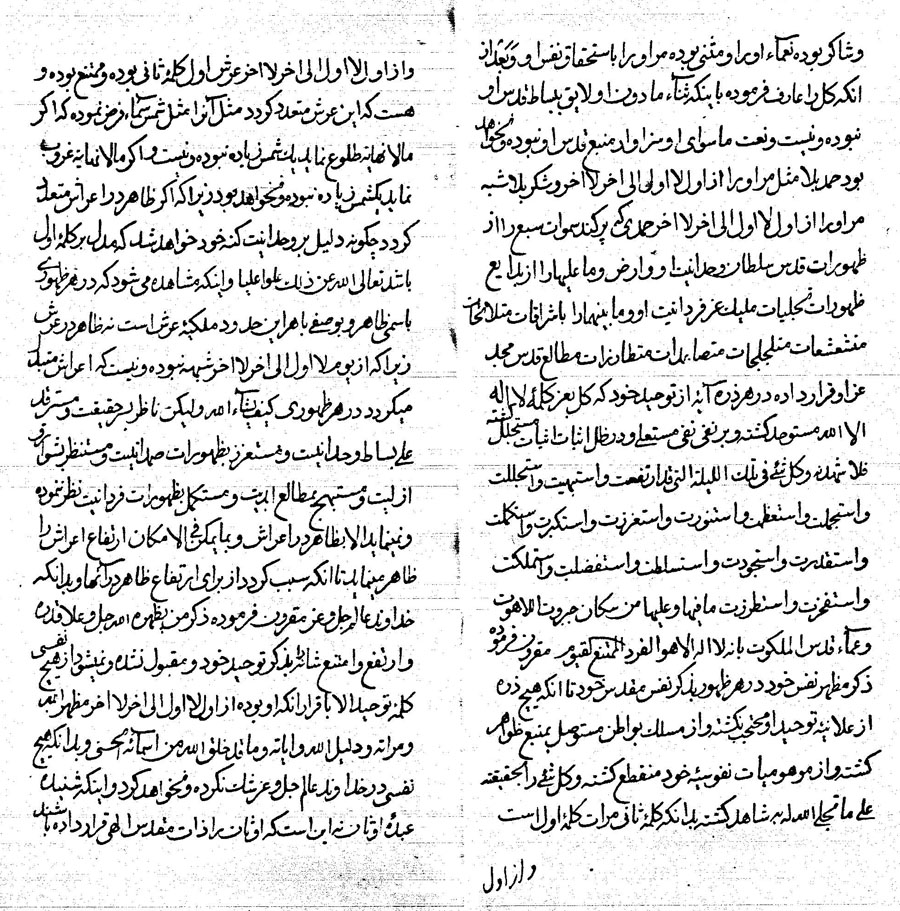 و شاکر بوده نعماء او را و مثنی بوده مر او را باستحقاق نفس او و بعد از
انکه کل را عارف فرموده باینکه ثناء ما دون او لایق بساط قدس او
نبوده و نیست و نعت ما سوای او سزاوار منبع قدس او نبوده و نخواهد
بود حمد بلا مثل مر او را از اول لا اول الی اخر لا اخر و شکر بلا شبه
مر او را از اول لا اول الی اخر لا اخر حمدی که پر کند سموات سبع را از
ظهورات قدس سلطان وحدانیت او و ارض و ما علیها را از بدایع
ظهورات تجلیات ملیک عز فردانیت او و ما بینهما را باشراقات متلامحات
متشعشعات متلجلجات متصاعدات متطارزات مطالع قدس مجد
عز او قرار داده در هر ذره آیهٔ از توحید خود که کل بعز کلمهٔ لا اله
الا الله مستوحد گشته و بر نفی نفی مستعلی و در ظل اثبات اثبات مستجلل گشته
فلاشهدنه و کل شیء فی تلک اللیلة التی قد ارتفعت و استبهیت و استجللت
و استجملت و استعظمت و استنورت و استعززت و استکبرت و استکملت
و استقدرت و استجودت و استسلطت و استفضلت و استملکت
و استفخرت و استطرزت ما فیها و علیها من سکان جبروت اللاهوت
و عماء قدس الملکوت بانه لا اله الا هو الفرد الممتنع القیوم مقرون فرموده
ذکر مظهر نفس خود در هر ظهور بذکر نفس مقدس خود تا انکه هیچ ذره
از علانیهٔ توحید او محتجب نگشته و از مسلک بواطن مستوصل بمنبع ظواهر
گشته و از موهومیات نفوسیهٔ خود منقطع گشته و کل شیء را بحقیقته
علی ما تجلی الله له به شاهد گشته بدانکه کلمهٔ ثانی مرات کلمهٔ اول است
و از اول
و از اول لا اول الی اخر لا اخر عرش اول کلمهٔ ثانی بوده و ممتنع بوده و
هست که این عرش متعدد گردد مثل آنرا بمثل شمس سماء فرض نموده که اگر
ما لا نهایه طلوع نماید یک شمس زیاده نبوده و نیست و اگر ما لا نهایه غروب
نماید یکشمس زیاده نبوده و نخواهد بود زیرا که اگر ظاهر در اعراش متعدد
گردد چگونه دلیل بر وحدانیت کنه خود خواهد شد که مدل بر کلمهٔ اول
باشد تعالی الله عن ذلک علوا علیا و اینکه مشاهده می شود که در هر ظهوری
باسمی ظاهر و بوصفی باهر این حدود ملکیهٔ عرش است نه ظاهر در عرش
زیرا که از یوم لا اول الی اخر لا اخر شبهه نبوده و نیست که اعراش متبدل
میگردد در هر ظهوری کیف یشاء الله و لیکن ناظر بسر حقیقت و مسترقد
علی بساط وحدانیت و مستعزز بظهورات صمدانیت و مستنظر بشوارق
ازلیت و مستبهج بمطالع ابدیت و مستکمل بظهورات فردانیت نظر ننموده
و نمینماید الا بظاهر در اعراش و بما یمکن فی الامکان ارتفاع اعراش را
ظاهر مینماید تا انکه سبب گردد از برای ارتفاع ظاهر در آنها و بدانکه
خداوند عالم جل و عز مقرون فرموده ذکر من یظهره الله جل و علا قدره
و ارتفع و امتنع شانه بذکر توحید خود و مقبول نشده و نمیشود از هیچ نفسی
کلمهٔ توحید الا باقرار انکه او بوده از اول لا اول الی اخر لا اخر مظهر الله
و مراته و دلیل الله و ایاته و ما قد خلق الله من اسمائه الحسنی و بدانکه هیچ
نفسی در خداوند عالم جل و عز شک نکرده و نخواهد کرد و اینکه شنیده
عبدهٔ اوثان نه این است که اوثان را ذات مقدس الهی قرار داده باشند